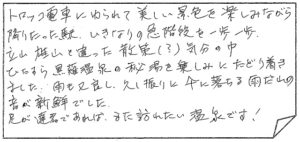 トロッコ電車にゆられて美しい景色を楽しみながら
降りたった駅、いきなりの急階段を一歩一歩、
立山雄山と違った散策(?)気分の中
ひたすら黒薙温泉の秘湯を楽しみにたどり着き
ました。雨も又良し、久し振りに傘に落ちる雨だれの
音が新鮮でした。
足が達者であれば、また訪れたい温泉です!